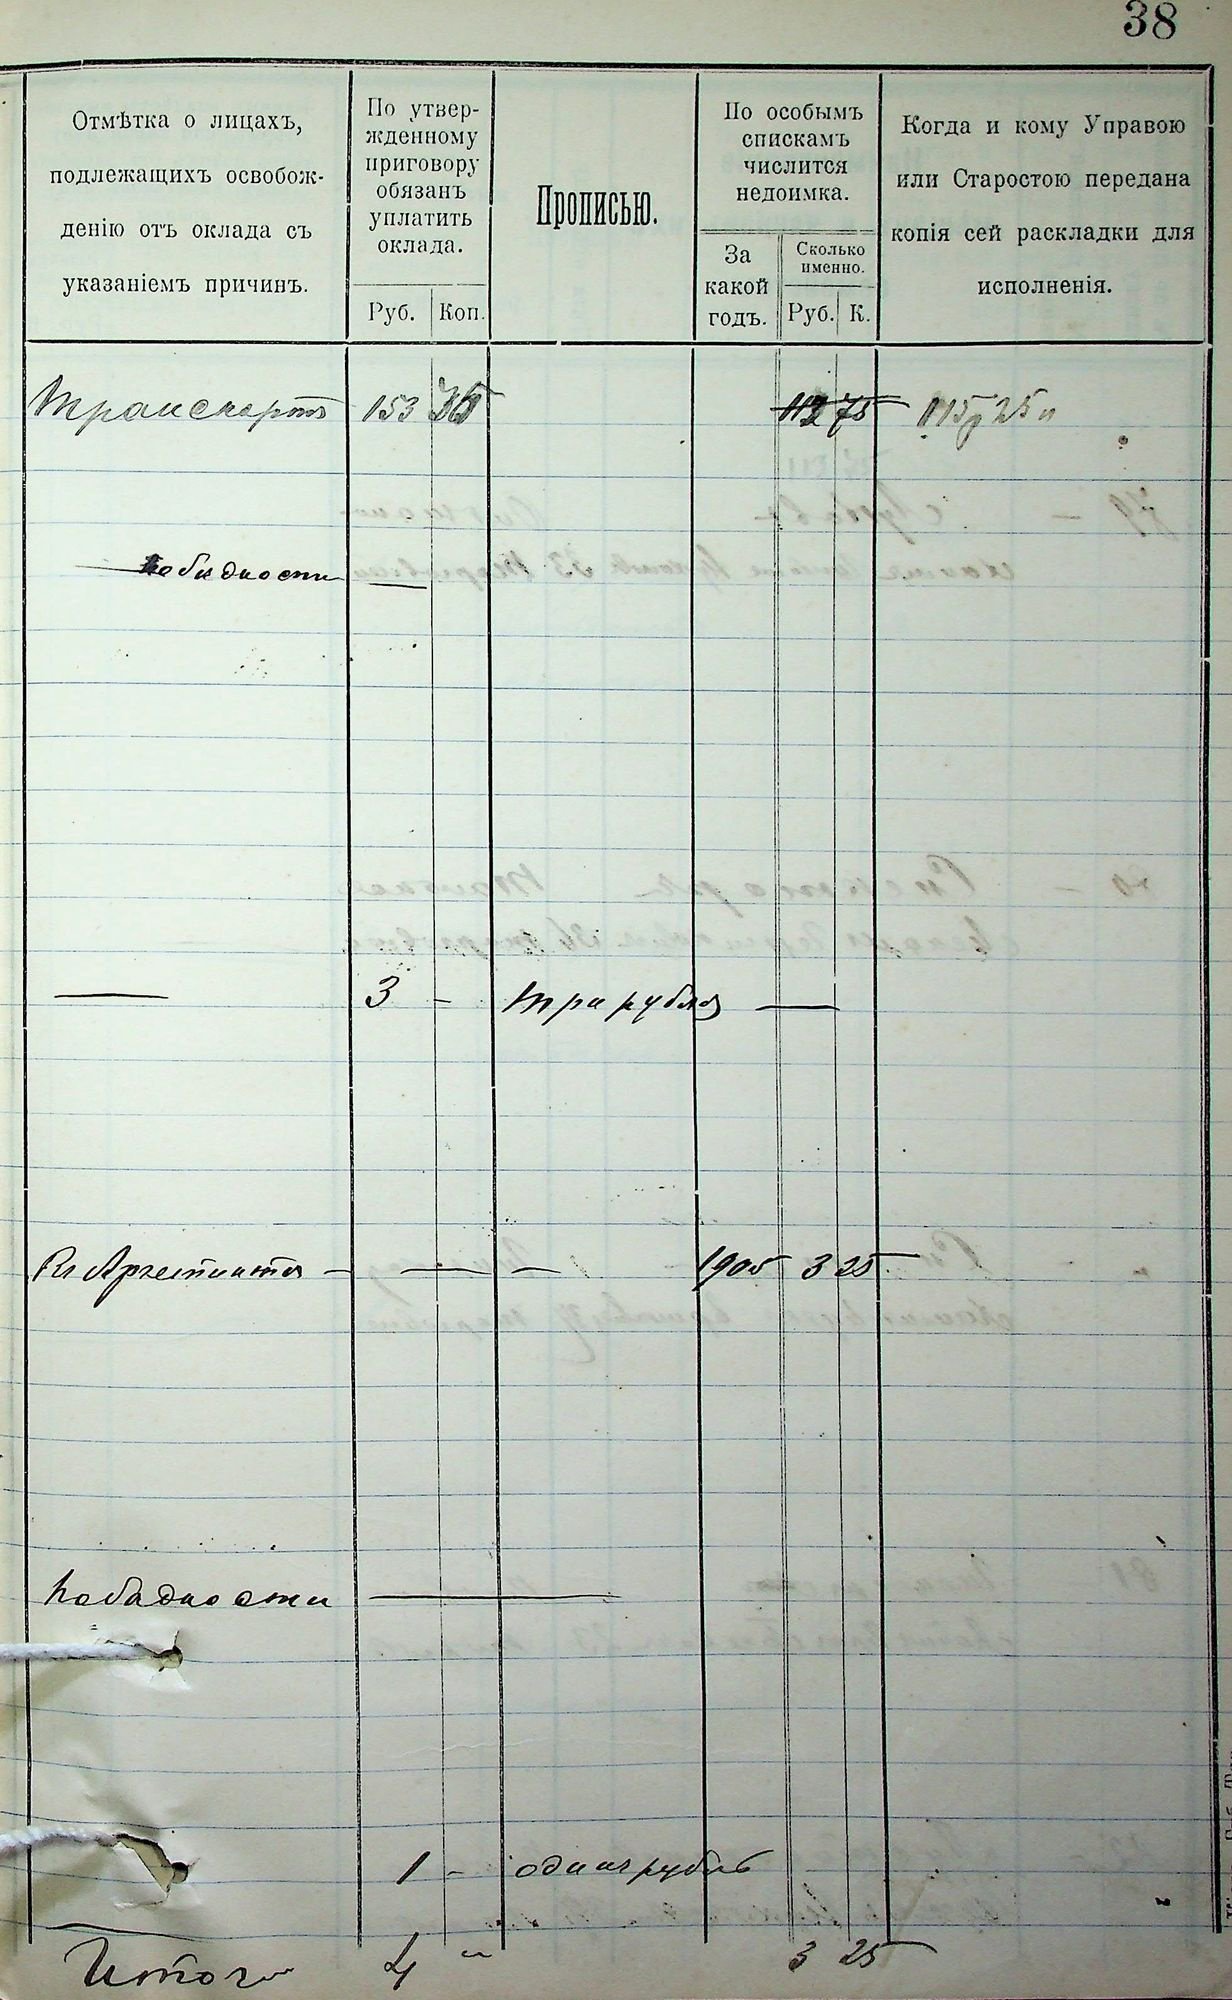 38
Отмѣтка о лицахъ,
подлежащихъ освобож-
денію отъ оклада съ
указаніемъ причинъ.
По утвер-
жденному
приговору
обязанъ
уплатить
оклада.
Руб. Коп.
Прописью.
По особымъ
спискамъ
числится
недоимка.
За
какой
годъ.
Сколько
именно.
Руб. К.
Когда и кому Управою
или Старостою передана
копія сей раскладки для
исполненія.
Транспортъ 153 112 75 115 р 25 к
по бѣдности —
— 3 - три рубля —
— — — 1905 3 25
По бѣдности —
1 - одинъ рубль
Итого 4 " 3 25